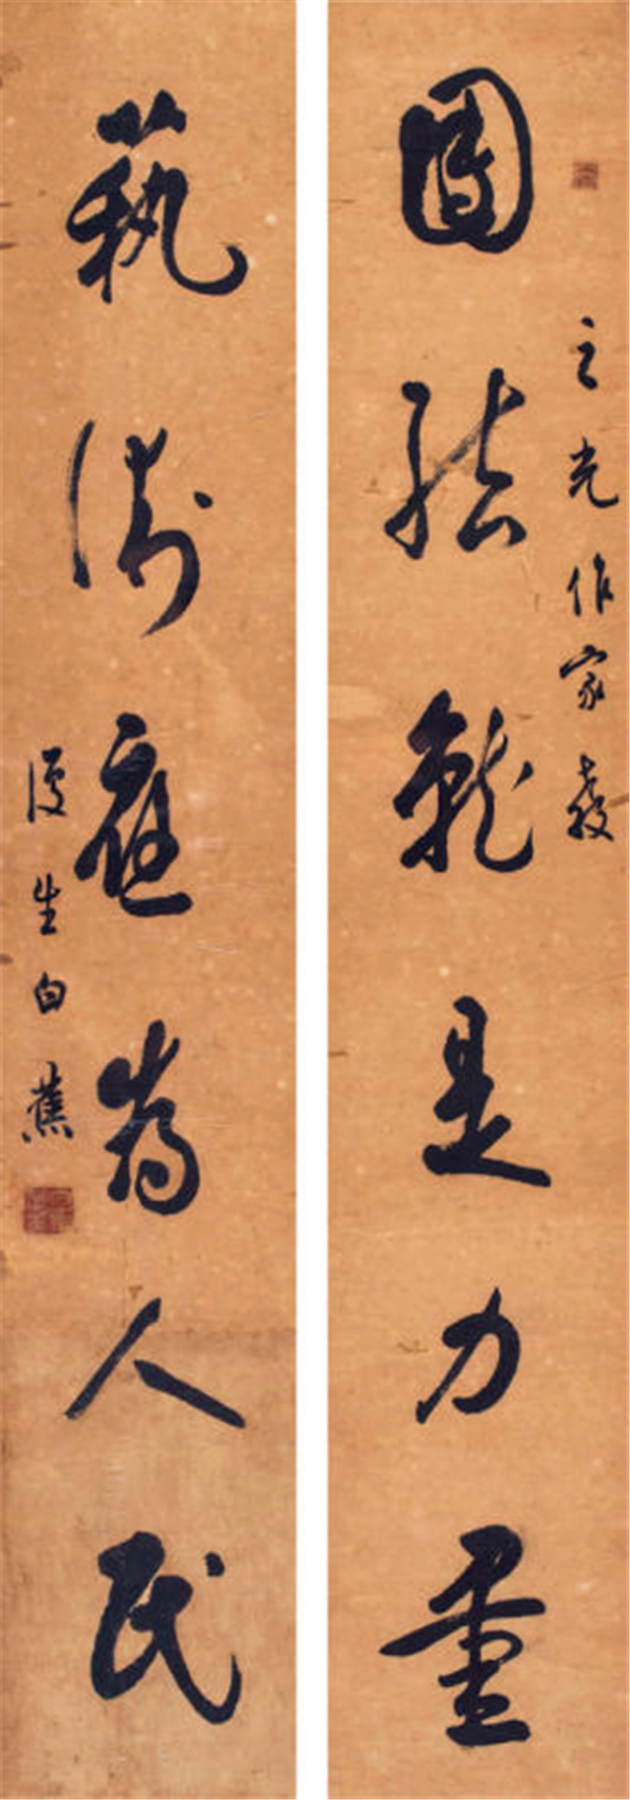 之光作家教
團結就是力量
藝術應爲人民
復生白蕉